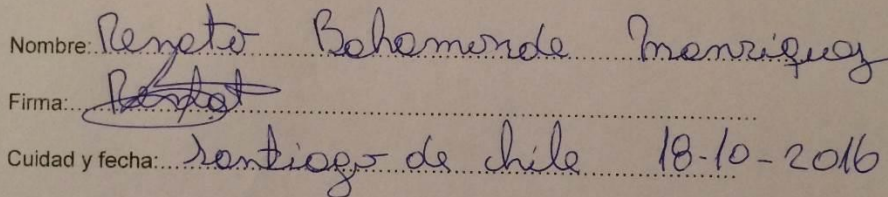 Nombre: Renato Bahamonde Manriquez
Firma: Renato
Cuidad y fecha: Santiago de chile 18-10-2016